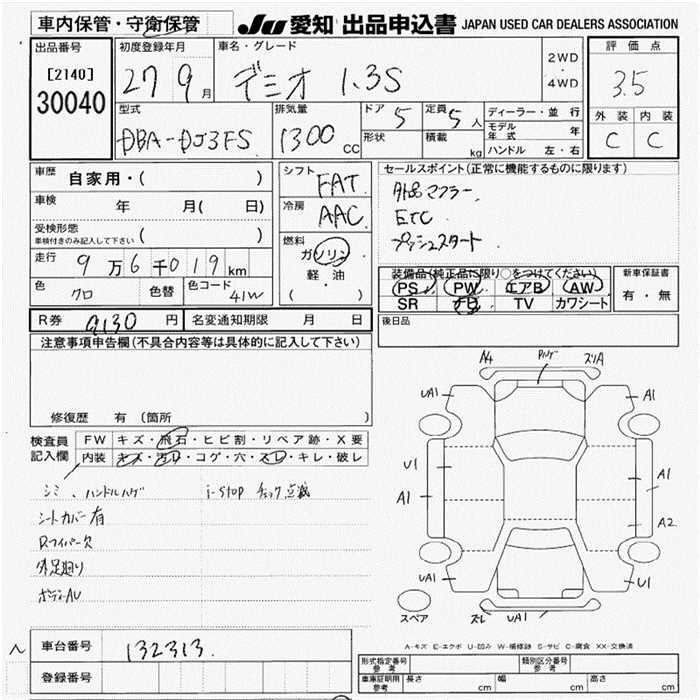 車内保管・守衛保管
JU 愛知 出品申込書 JAPAN USED CAR DEALERS ASSOCIATION
出品番号
[2140]
30040
初度登録年月
27 9月
車名・グレード
デミオ 1.3S
2WD
・
4WD
評価点
3.5
外装 内装
C C
型式
DBA-DJ3FS
排気量
1300cc
ドア 5
形状
定員 5人
積載 kg
ディーラー・並行
モデル年式 年
ハンドル 左・右
車歴 自家用・( )
車検 年 月( 日)
受検形態
車検付きのみ記入して下さい ( )
走行 9万6千019km
色 クロ 色替 色コード 41W
シフト FAT
冷房 AAC
燃料
ガソリン
軽・油
( ・ )
セールスポイント(正常に機能するものに限ります)
外品マフラー
ETC
プッシュスタート
装備品(純正品に限り○をつけてください)
PS PW エアB AW
SR ナビ TV カワシート
新車保証書
有・無
後日品
R券 9130円 名変通知期限 月 日
注意事項申告欄(不具合内容等は具体的に記入して下さい)
修復歴 有(箇所 )
検査員記入欄
FW キズ・飛石・ヒビ割・リペア跡・X要
内装 キズ・汚れ・コゲ・穴・スレ・キレ・破レ
シミ、ハンドルハゲ i-stop チェック点滅
シートカバー有
Rワイパー欠
外足廻り
ボディAU
A4 スリA
UA1 A1
U1 A1
A1 A2
UA1 U1
スペア スレ UA1
A-キズ E-エクボ U-凹み W-補修跡 S-サビ C-腐食 XX-交換済
車台番号 132313
登録番号
型式指定番号 参考
類別区分番号 参考
車庫証明用 参考 長さ cm 幅 cm 高さ cm